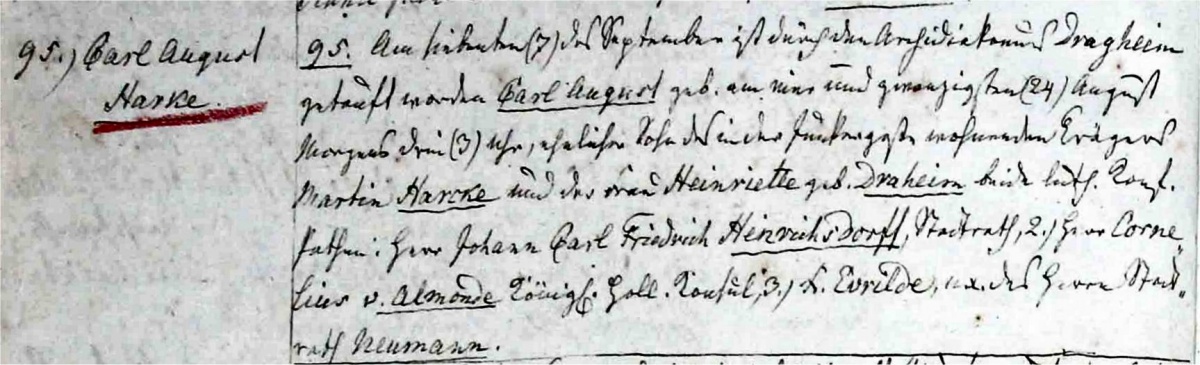 95.) Carl August
Harke.
95. Am siebenten (7) des September ist durch den Archidiakonus Dragheim
getauft worden Carl August geb. am vier und zwanzigsten (24) August
Morgens drei (3) Uhr, ehelicher Sohn des in der Junkergasse wohnenden Krügers
Martin Harcke und der Frau Heinriette geb. Draheim beide luth. Konf.
Pathen: Herr Johann Carl Friedrich Heinrichsdorff, Stadtrath, 2.) Herr Corne„
lius v. Almonde Königl. Holl. Konsul, 3.) Evrilde, ux. des Herrn Stadt„
rath Neumann.